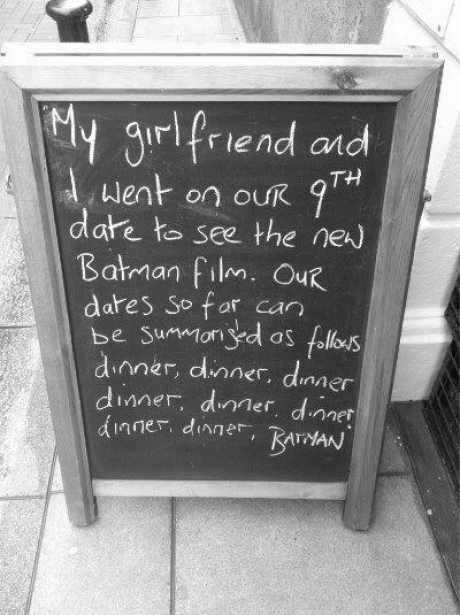 My girlfriend and
I went on our 9TH
date to see the new
Batman film. Our
dates so far can
be summarised as follows
dinner, dinner, dinner
dinner, dinner, dinner,
dinner, dinner, BATMAN